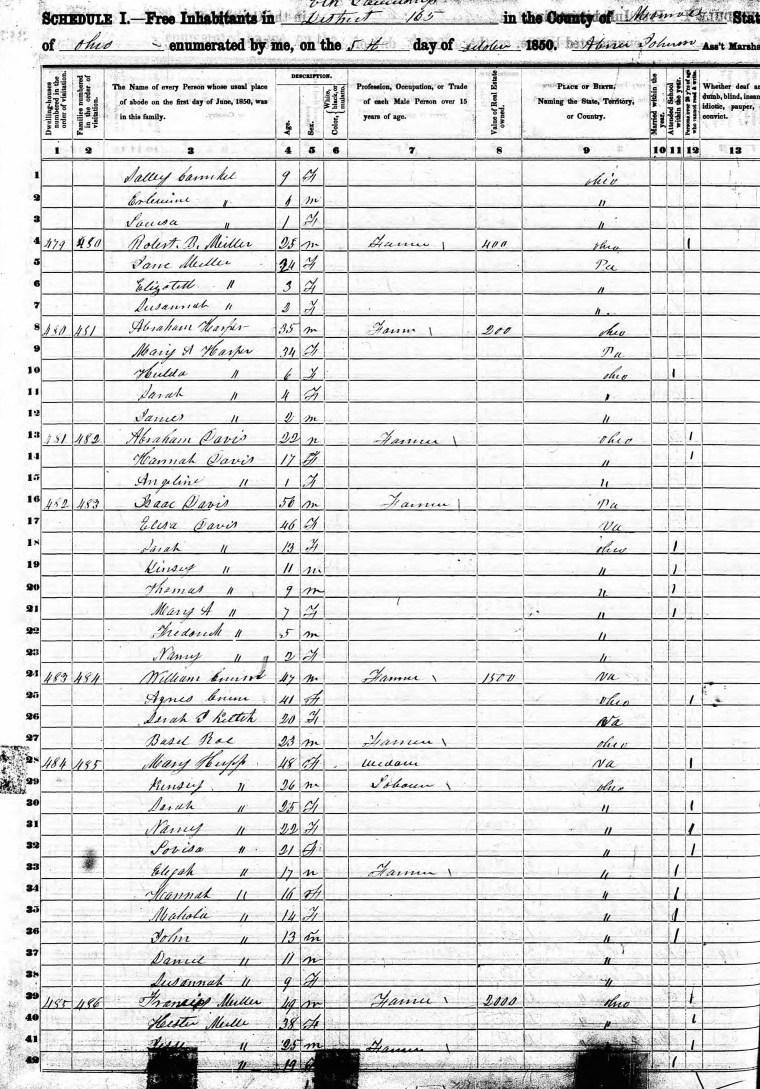 SCHEDULE I.—Free Inhabitants in District 165 in the County of Stat
of ohio enumerated by me, on the 5th day of 1850. Abner Johnson Ass't Marsha
DESCRIPTION.
Dwelling-houses numbered in the order of visitation. Families numbered in the order of visitation. The Name of every Person whose usual place of abode on the first day of June, 1850, was in this family. Age. Sex. Color, White, black, or mulatto. Profession, Occupation, or Trade of each Male Person over 15 years of age. Value of Real Estate owned. PLACE OF BIRTH. Naming the State, Territory, or Country. Married within the year. Attended School within the year. Persons over 20 y'rs of age who cannot read & write. Whether deaf and dumb, blind, insane, idiotic, pauper, or convict.
1 2 3 4 5 6 7 8 9 10 11 12 13
1 9 F ohio
2 " m "
3 Louisa " 1 F "
4 479 480 Robert B. Miller 25 m Farmer \ 400 ohio 1
5 Jane Miller 24 F Pa
6 Elizabeth " 3 F "
7 Susannah " 2 F "
8 480 481 Abraham Harper 35 m Farmer \ 200 ohio
9 Mary A Harper 34 F Pa
10 Hulda " 6 F ohio 1
11 Sarah " 4 F "
12 James " 2 m "
13 481 482 Abraham Davis 22 m Farmer \ ohio 1
14 Hannah Davis 17 F " 1
15 Angeline " 1 F "
16 482 483 Isaac Davis 56 m Farmer \ Pa
17 Elisa Davis 46 F Va
18 Sarah " 13 F ohio 1
19 Kinsey " 11 m " 1
20 Thomas " 9 m " 1
21 Mary A " 7 F " 1
22 Frederick " 5 m "
23 Nancy " 2 F "
24 483 484 William 47 m Farmer \ 1500 Va
25 Agnes 41 F ohio 1
26 Sarah 20 F Va
27 Basel Roe 23 m Farmer \ ohio
28 484 485 Mary Hupp 48 F Va 1
29 Kinsey " 26 m \ ohio
30 Sarah " 25 F " 1
31 Nancy " 22 F " 1
32 Lovisa " 21 F " 1
33 Elijah " 17 m Farmer \ " 1
34 Hannah " 16 F " 1
35 Mahala " 14 F " 1
36 John " 13 m " 1
37 Daniel " 11 m "
38 Susannah " 9 F "
39 485 486 Francis Miller 49 m Farmer \ 2000 ohio 1
40 Hester Miller 38 F " 1
41 " 25 m Farmer \ " 1
42 " 19 1